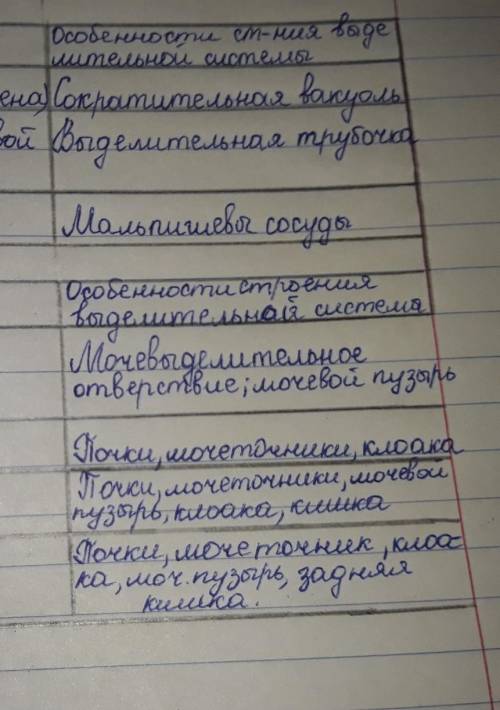 Особенности ст-ния выде
лительной системы
ена) Сократительная вакуоль
вой Выделительная трубочка
Мальпишевы сосуды
Особенности строения
выделительной система
Мочевыделительное
отверствие; мочевой пузырь
Почки, мочеточники, клоака
Почки, мочеточники, мочевой
пузырь, клоака, кишка
Почки, мочеточник, клоа-
ка, моч. пузырь, задняя
кишка.